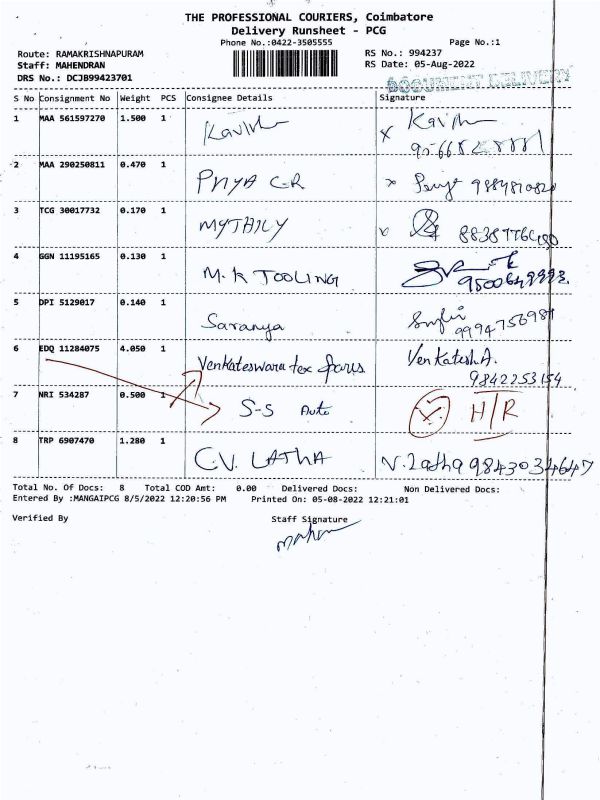 THE PROFESSIONAL COURIERS, Coimbatore
Delivery Runsheet - PCG
Phone No.:0422-3505555 Page No.:1
Route: RAMAKRISHNAPURAM RS No.: 994237
Staff: MAHENDRAN RS Date: 05-Aug-2022
DRS No.: DCJB99423701 DOCUMENT DELIVERY
S No Consignment No Weight PCS Consignee Details Signature
1 MAA 561597270 1.500 1
2 MAA 290250811 0.470 1 PRIYA C.R 9884810820
3 TCG 30017732 0.170 1 MYTHILY
4 GGN 11195165 0.130 1 M.K TOOLING
5 DPI 5129017 0.140 1 Saranya
6 EDQ 11284075 4.050 1 Venkateswara tex Venkatesh.A.
9842253154
7 NRI 534287 0.500 1 S-S Auto H/R
8 TRP 6907470 1.280 1 C.V. LATHA V.Latha 9843034647
Total No. Of Docs: 8 Total COD Amt: 0.00 Delivered Docs: Non Delivered Docs:
Entered By :MANGAIPCG 8/5/2022 12:20:56 PM Printed On: 05-08-2022 12:21:01
Verified By Staff Signature